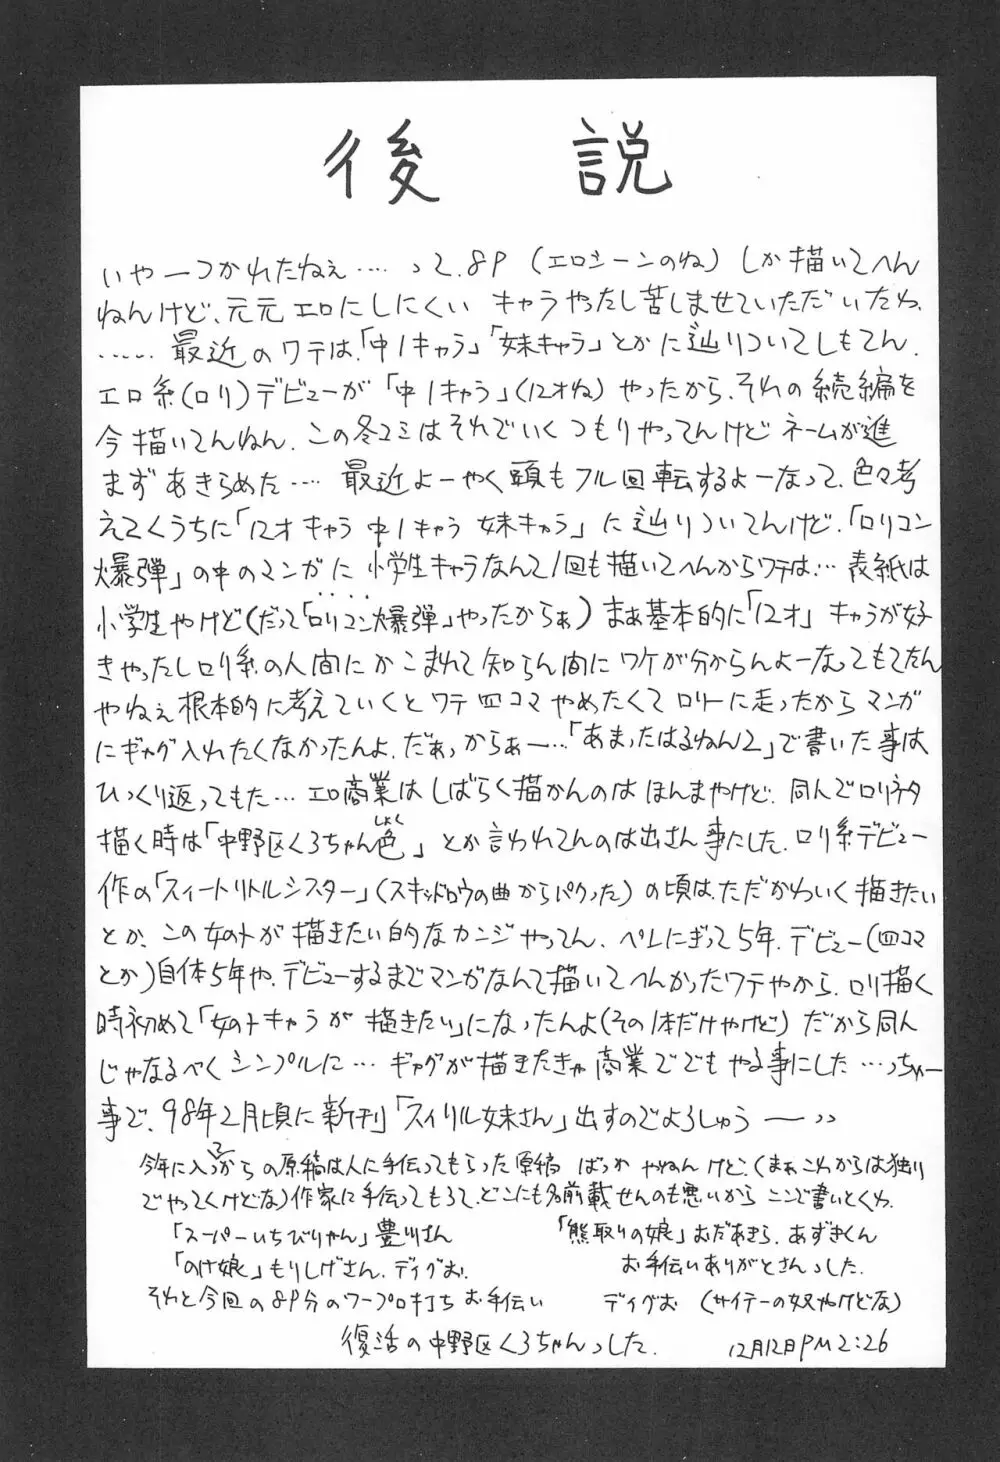 後説
いやーつかれたねぇ……って、8P（エロシーンのね）しか描いてへん
ねんけど、元元エロにしにくいキャラやったし苦しませていただいたわ、
……最近のワテは、「中1キャラ」「妹キャラ」とかに辿りついてしもてん、
エロ系（ロリ）デビューが「中1キャラ」（12才ね）やったから、それの続編を
今描いてんねん、この冬コミはそれでいくつもりやってんけどネームが進
まずあきらめた…… 最近よーやく頭もフル回転するよーなって、色々考
えてくうちに「12才キャラ 中1キャラ 妹キャラ」に辿りついてんけど、「ロリコン
爆弾」の中のマンガに小学生キャラなんて1回も描いてへんからワテは…表紙は
小学生やけど（だって「ロリコン爆弾」やったからぁ）まぁ基本的に「12才」キャラが好
きやったしロリ系の人間にかこまれて知らん間にワケが分からんよーなってもてたん
やねぇ根本的に考えていくとワテ四コマやめたくてロリーに走ったからマンガ
にギャグ入れたくなかったんよ、だぁっからぁー…「あまったはるねん2」で書いた事は
ひっくり返ってもた…エロ商業はしばらく描かんのはほんまやけど、同人でロリネタ
描く時は「中野区くろちゃん色しょく」とか言われてんのは出さん事にした、ロリ系デビュー
作の「スィートリトルシスター」（スキッドロウの曲からパクった）の頃は、ただかわいく描きたい
とか、この女のトが描きたい的なカンジやってん、ペンにぎって5年、デビュー（四コマ
とか）自体5年や、デビューするまでマンガなんて描いてへんかったワテやから、ロリ描く
時初めて「女のトキャラが描きたい」になったんよ（その1本だけやけど）だから同人
じゃなるべくシンプルに…ギャグが描きたきゃ商業ででもやる事にした…っちゅー
事で、98年2月頃に新刊「スィリル妹さん」出すのでよろしゅうー〃
今年に入ってからの原稿は人に手伝ってもらった原稿ばっかやねんけど、（まぁこれからは独り
でやってくけどな）作家に手伝ってもろて、どこにも名前載せんのも悪いからここで書いとくわ、
「スーパーいちびりやん」豊川さん 「熊取りの娘」おだあきら、あずきくん
「のけ娘」もりしげさん、ディグお、 お手伝いありがとさんっした、
それと今回の8P分のワープロ打ちお手伝い ディグお（サイテーの奴やけどな）
復活の中野区くろちゃんっした、 12月12日PM2:26